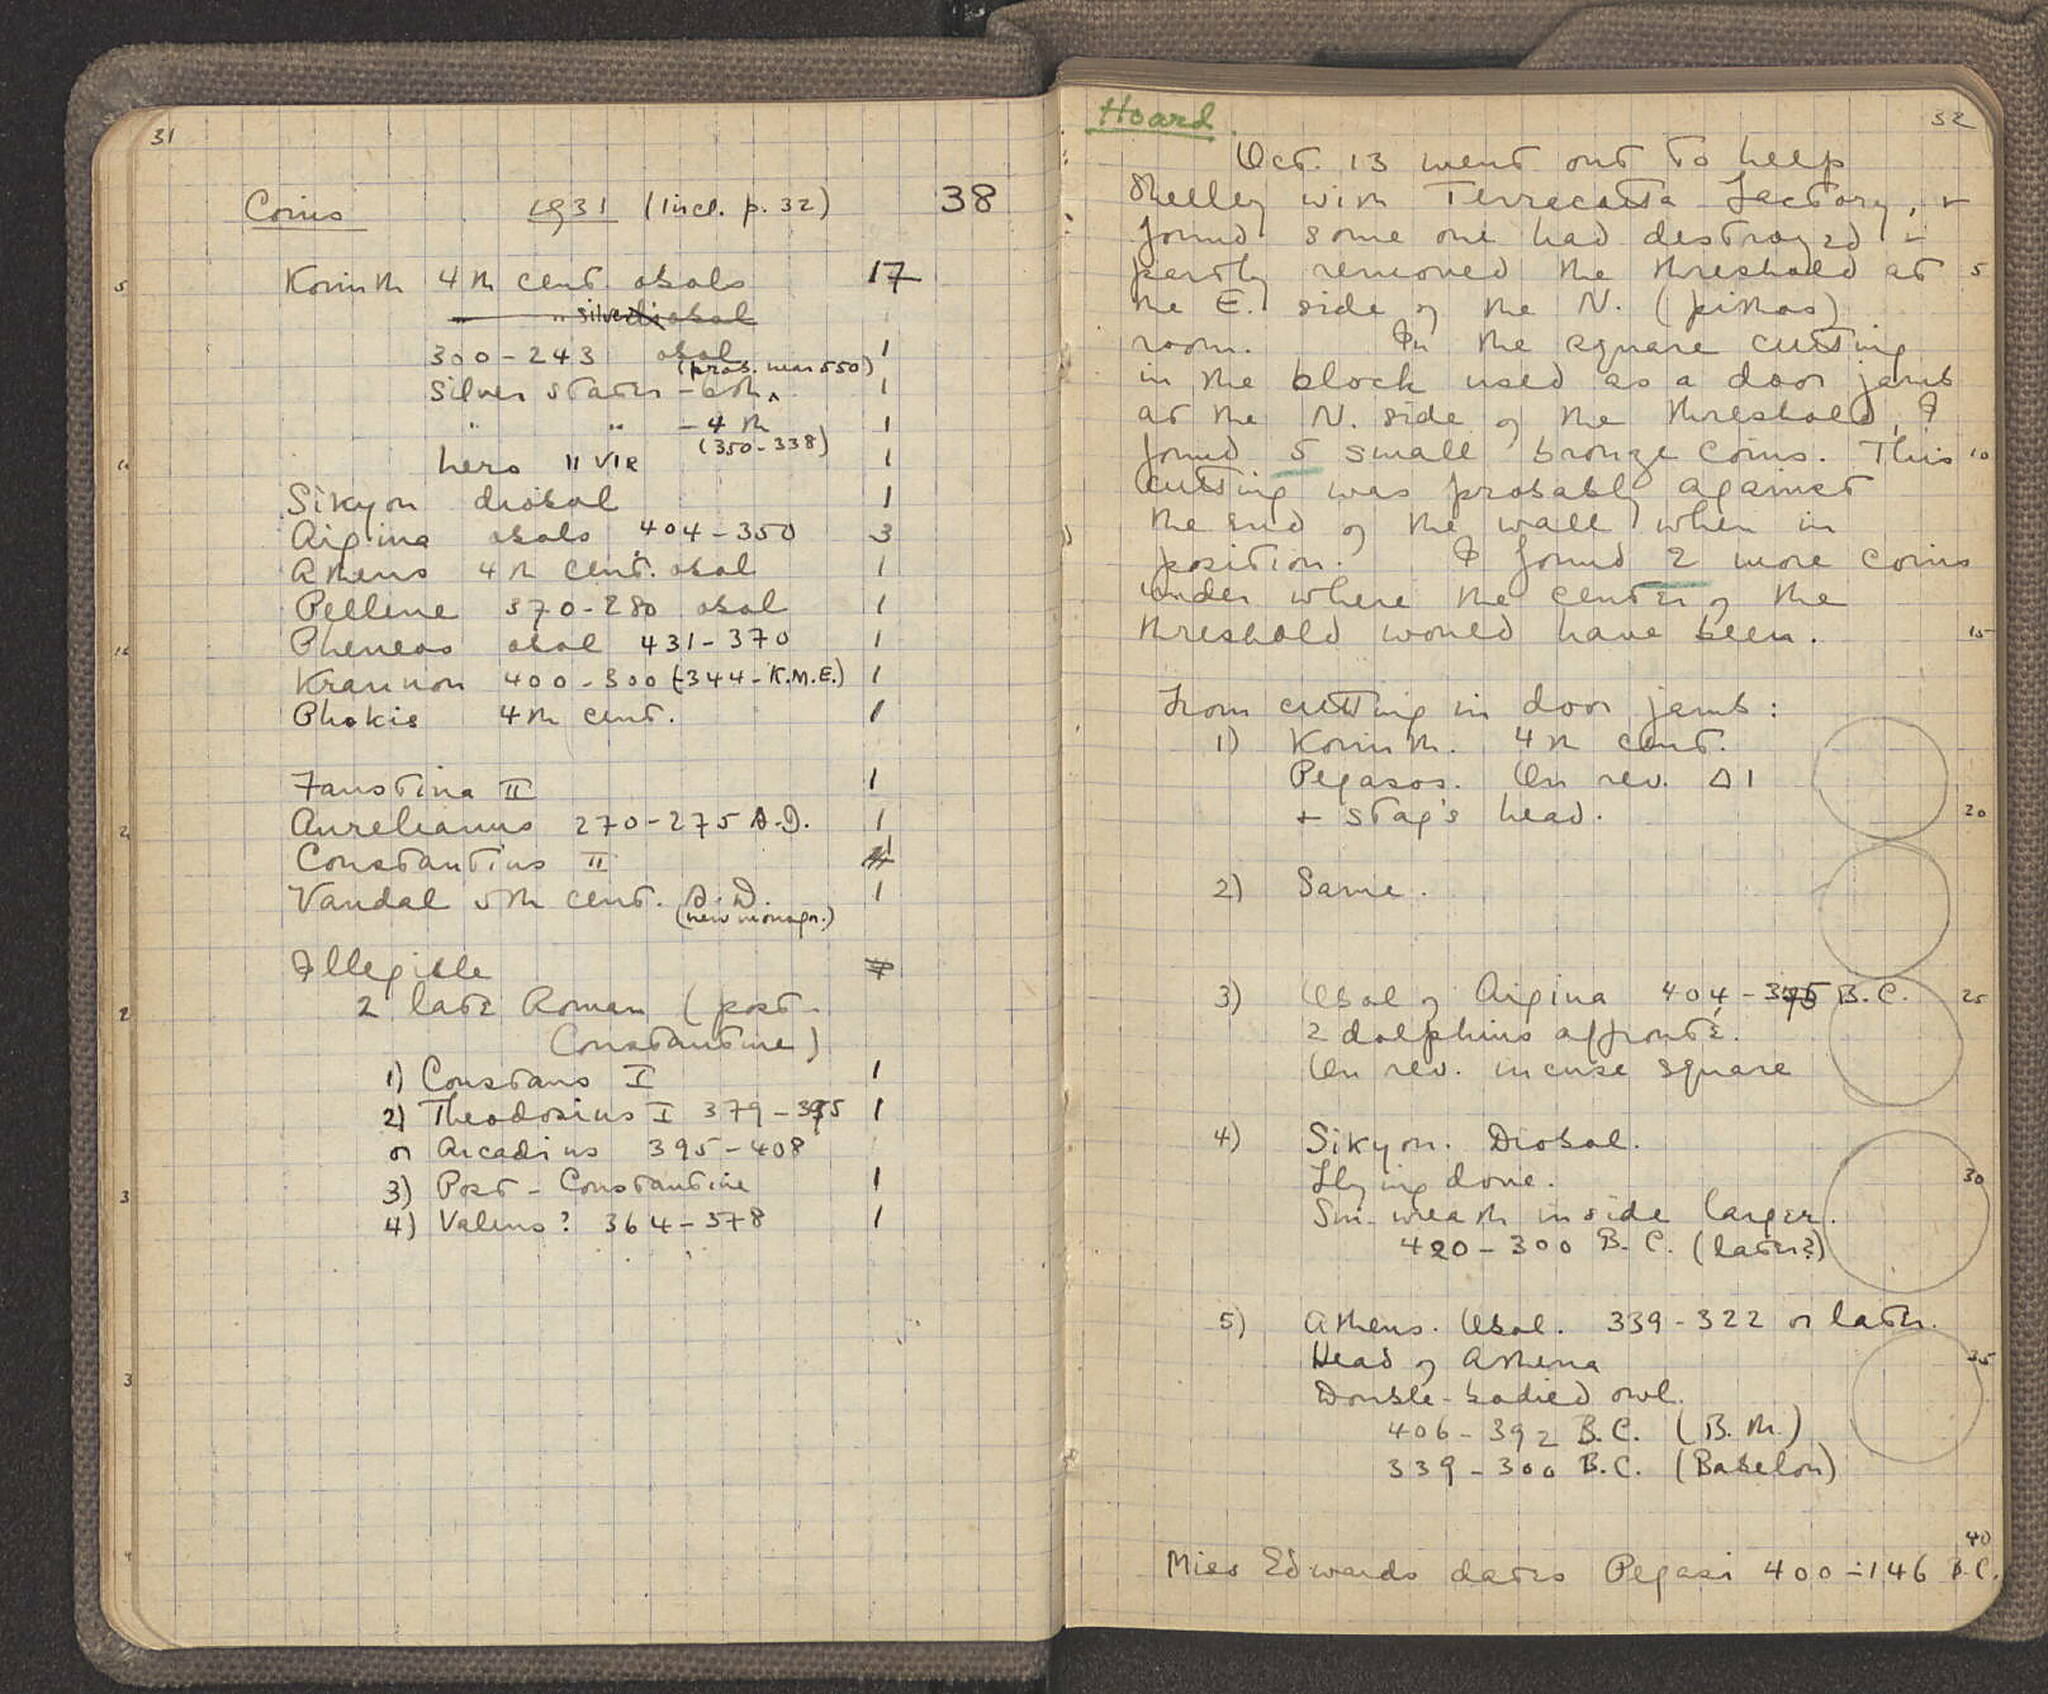 31
Coins 1931 (Incl. p. 32) 38
5 Korinth 4th cent. obols 17
" " silver diobol
300-243 obol 1
(prob. near 550)
Silver stater - 6th ^ 1
" " - 4th 1
(350-338)
10 hero II VIR 1
Sikyon diobol 1
Aigina obols 404-350 3
Athens 4th cent. obol 1
Pellene 370-280 obol 1
15 Pheneos obol 431-370 1
Krannon 400-300 (-344-K.M.E.) 1
Phokis 4th cent. 1
Faustina II 1
2 Aurelianus 270-275 A.D. 1
Constantius II 1
Vandal 5th cent. A.D. 1
(new monogr.)
Illegible
2 2 late Roman (post-
Constantine)
1) Constans I 1
2) Theodosius I 379-395 1
or Arcadius 395-408
3 3) Post-Constantine 1
4) Valens? 364-378 1
3
4
Hoard 32
Oct. 13 went out to help
Shelley with Terracotta Factory, +
found some one had destroyed +
partly removed the threshold at 5
the E. side of the N. (pithos)
room. In the square cutting
in the block used as a door jamb
at the N. side of the threshold, I
found 5 small bronze coins. This 10
cutting was probably against
the end of the wall when in
position. I found 2 more coins
under where the center of the
threshold would have been. 15
From cutting in door jamb:
1) Korinth. 4th cent.
Pegasos. On rev. Δ I
+ stag's head. 20
2) Same.
3) Obol of Aigina 404-375 B.C. 25
2 dolphins affronté.
On rev. incuse square
4) Sikyon. Diobol.
Flying dove. 30
Sm. wreath inside larger.
420-300 B.C. (later?)
5) Athens. Obol. 339-322 or later.
Head of Athena 35
Double-bodied owl.
406-392 B.C. (B.M.)
339-300 B.C. (Babelon)
40
Miss Edwards dates Pegasi 400-146 B.C.